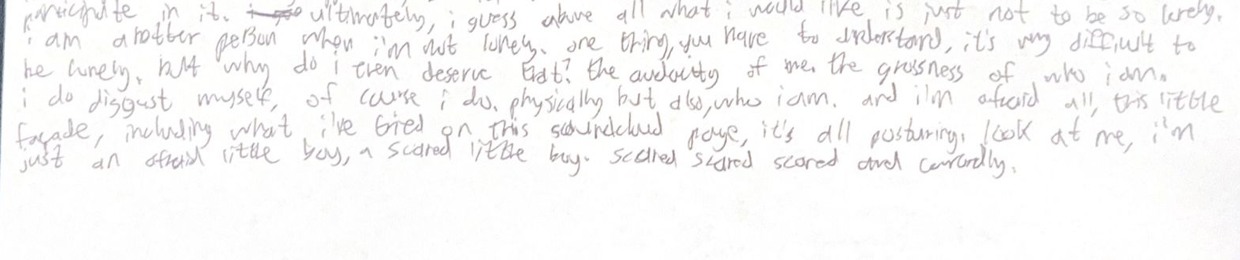 participate in it. ultimately, i guess above all what i would like is just not to be so lonely.
i am another person when i'm not lonely. one thing, you have to understand, it's very difficult to
be lonely. but why do i even deserve that? the audacity of me. the grossness of who i am.
i do disgust myself, of course i do. physically but also, who i am. and i'm afraid all, this little
façade, including what i've tried on this soundcloud page, it's all posturing. look at me, i'm
just an afraid little boy, a scared little boy. scared scared scared and cowardly.